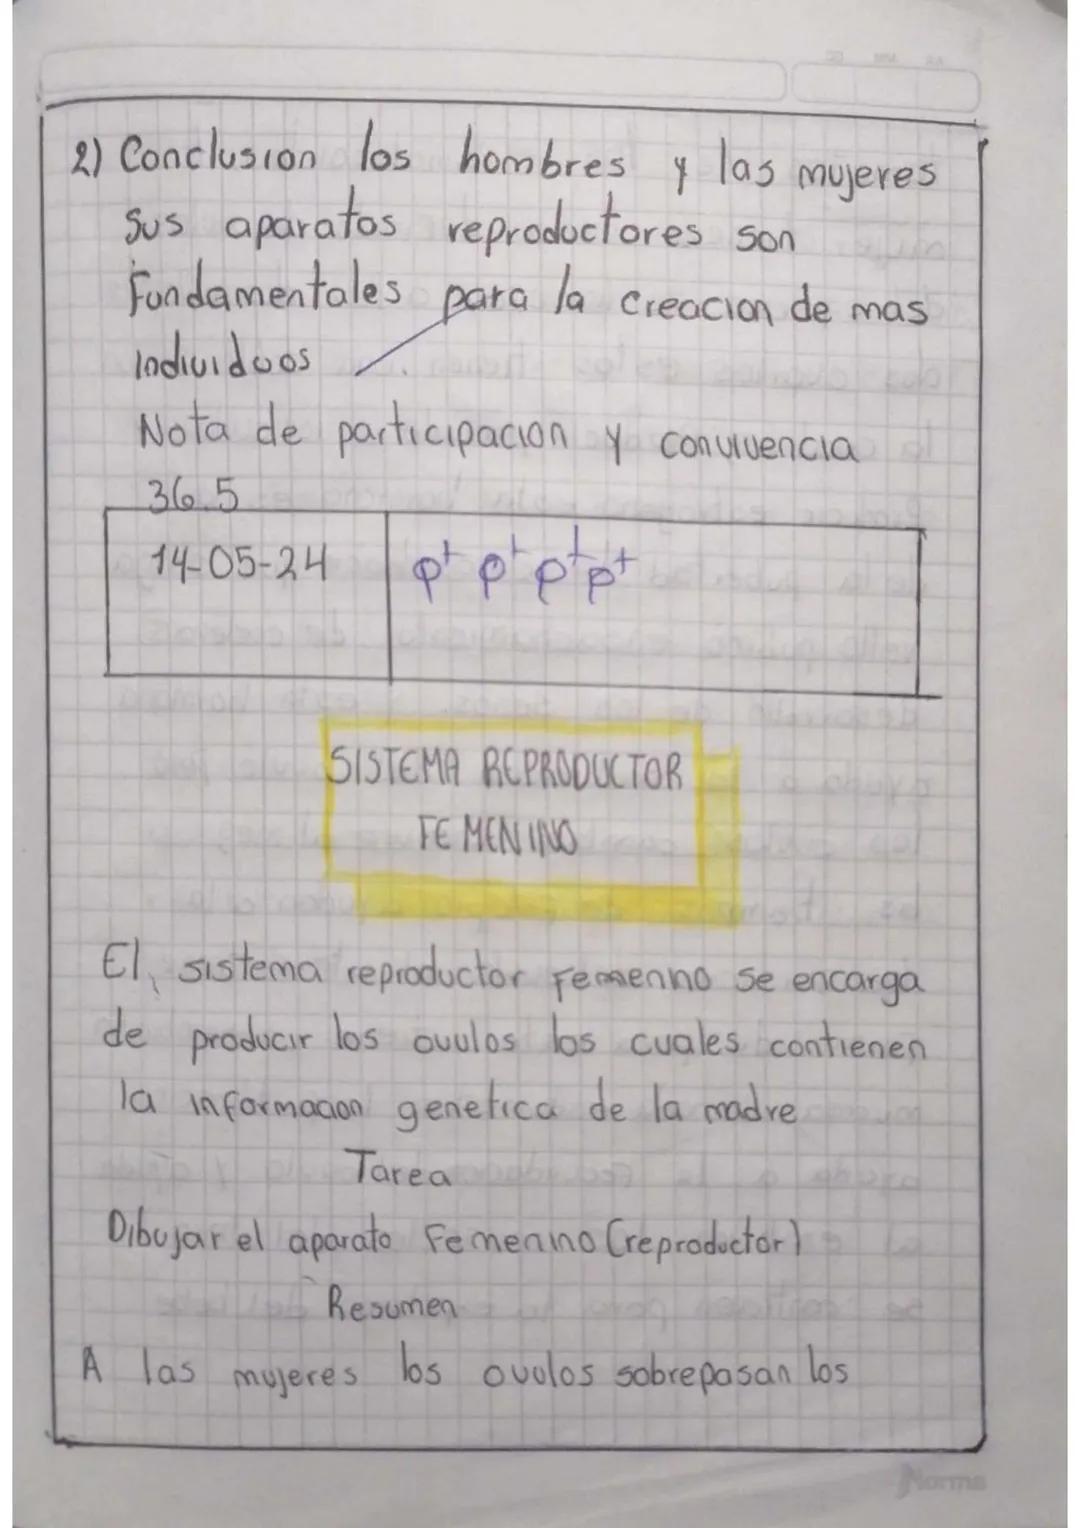 2) Conclusion los hombres y las mujeres
sus aparatos reproductores son
Fundamentales para la creacion de mas
individuos
Nota de participacion y convivencia
36.5
14-05-24 p+ p+ p+ p+
SISTEMA REPRODUCTOR
FEMENINO
El sistema reproductor Femenino se encarga
de producir los ovulos los cuales contienen
la informacion genetica de la madre
Tarea
Dibujar el aparato Femenino (reproductor)
Resumen
A las mujeres los ovulos sobrepasan los
Norma